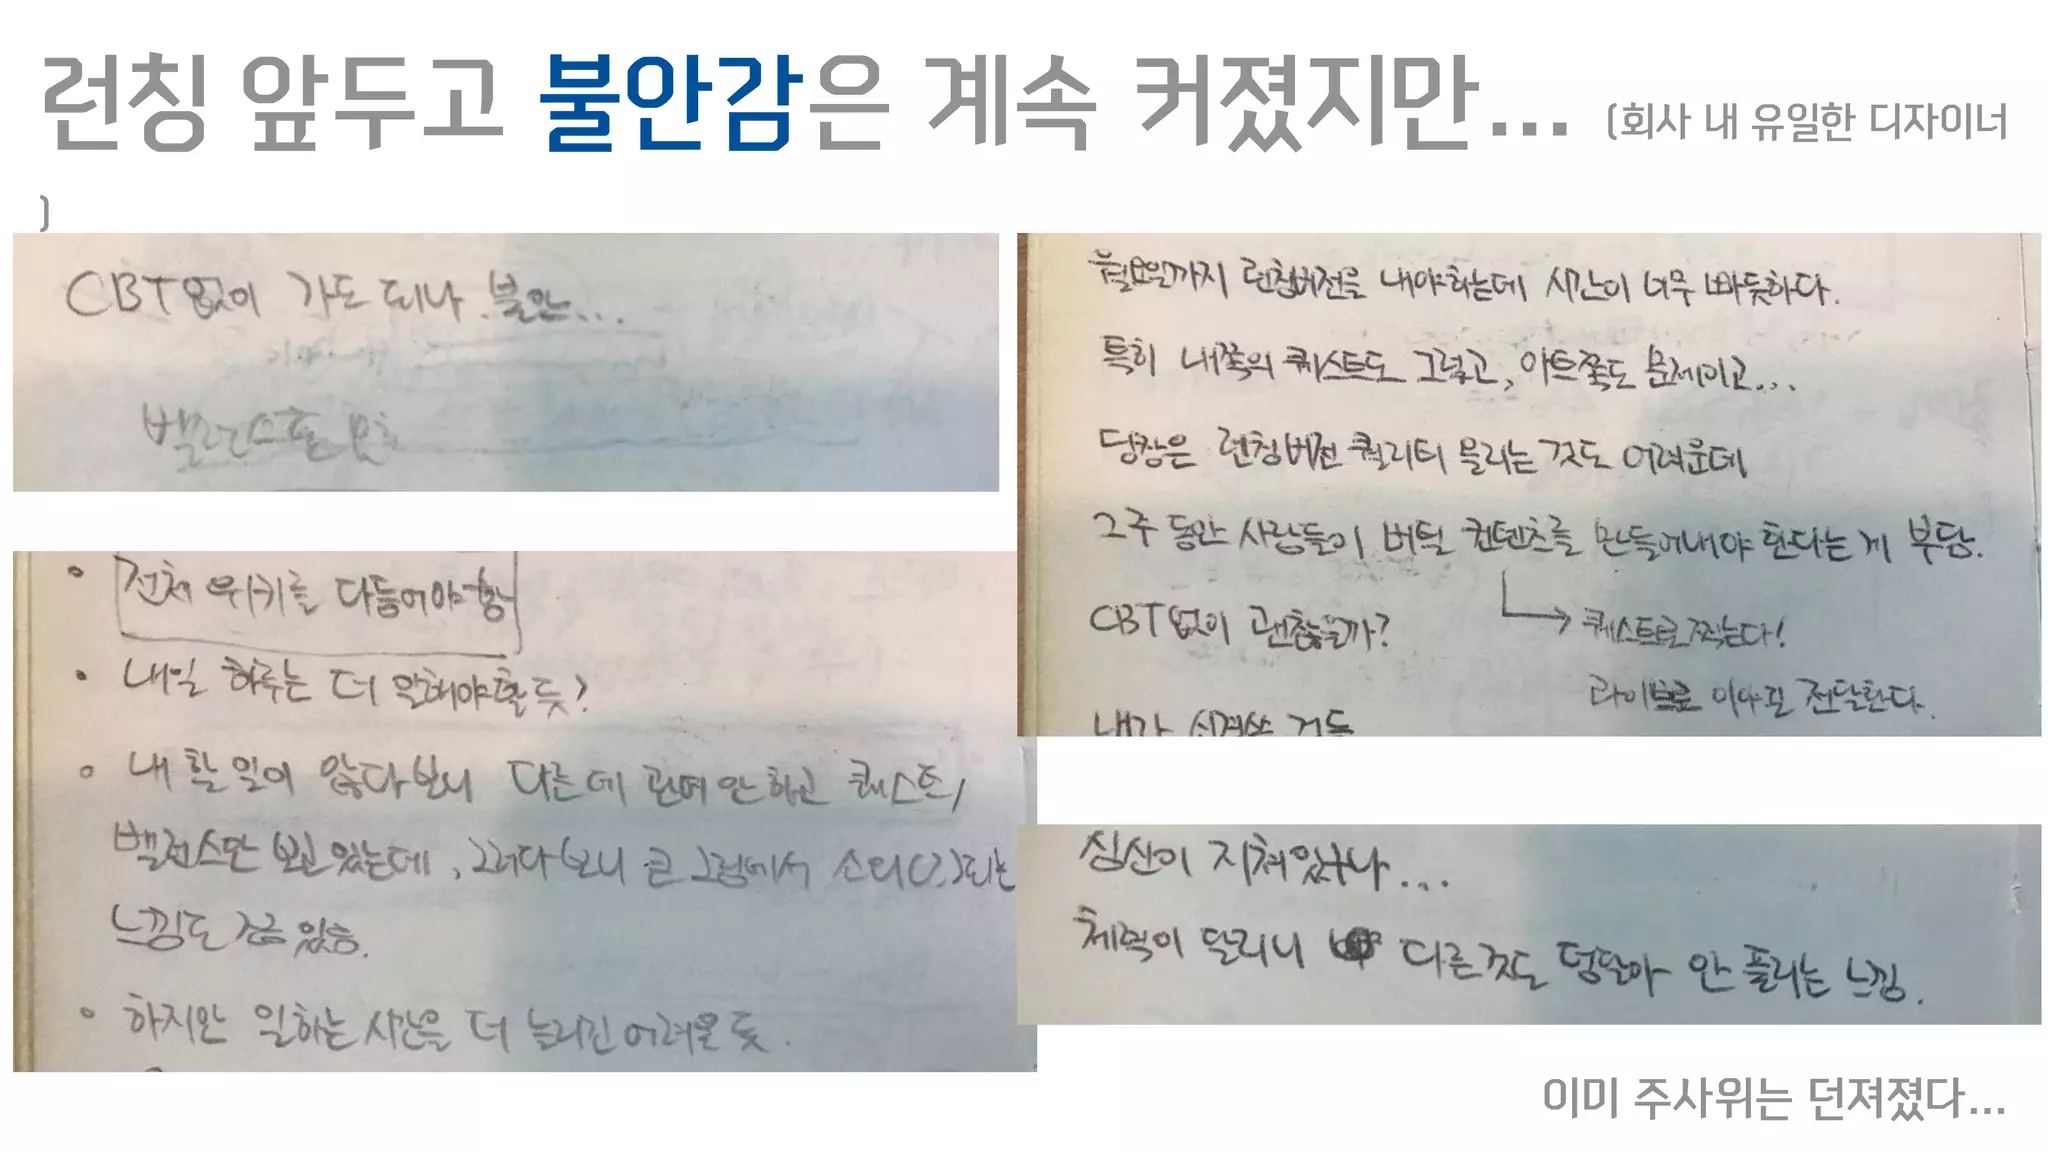 런칭 앞두고 불안감은 계속 커졌지만... (회사 내 유일한 디자이너
)
CBT없이 가도 되나. 불안...
벨런스를
전체 위키를 다듬어야 함
내일 하루는 더 일해야할 듯?
내 할 일이 많다보니 다른데 관여 안하고 퀘스트,
밸런스만 보고 있는데, 그러다보니 큰 그림에서 소외(?)되는
느낌도 조금 있음.
하지만 일하는 시간을 더 늘리긴 어려울 듯.
월요일까지 런칭버전을 내야하는데 시간이 너무 빠듯하다.
특히 내쪽의 퀘스트도 그렇고, 아트쪽도 문제이고...
당장은 런칭버전 퀄리티 올리는 것도 어려운데
2주 동안 사람들이 버틸 컨텐츠를 만들어내야 한다는 게 부담.
CBT없이 괜찮을까?
퀘스트로 찍는다!
라이브로 전달한다.
내가 신경쓸 것들
심신이 지쳐있구나...
체력이 달리니 다른것도 덩달아 안 풀리는 느낌.
이미 주사위는 던져졌다...